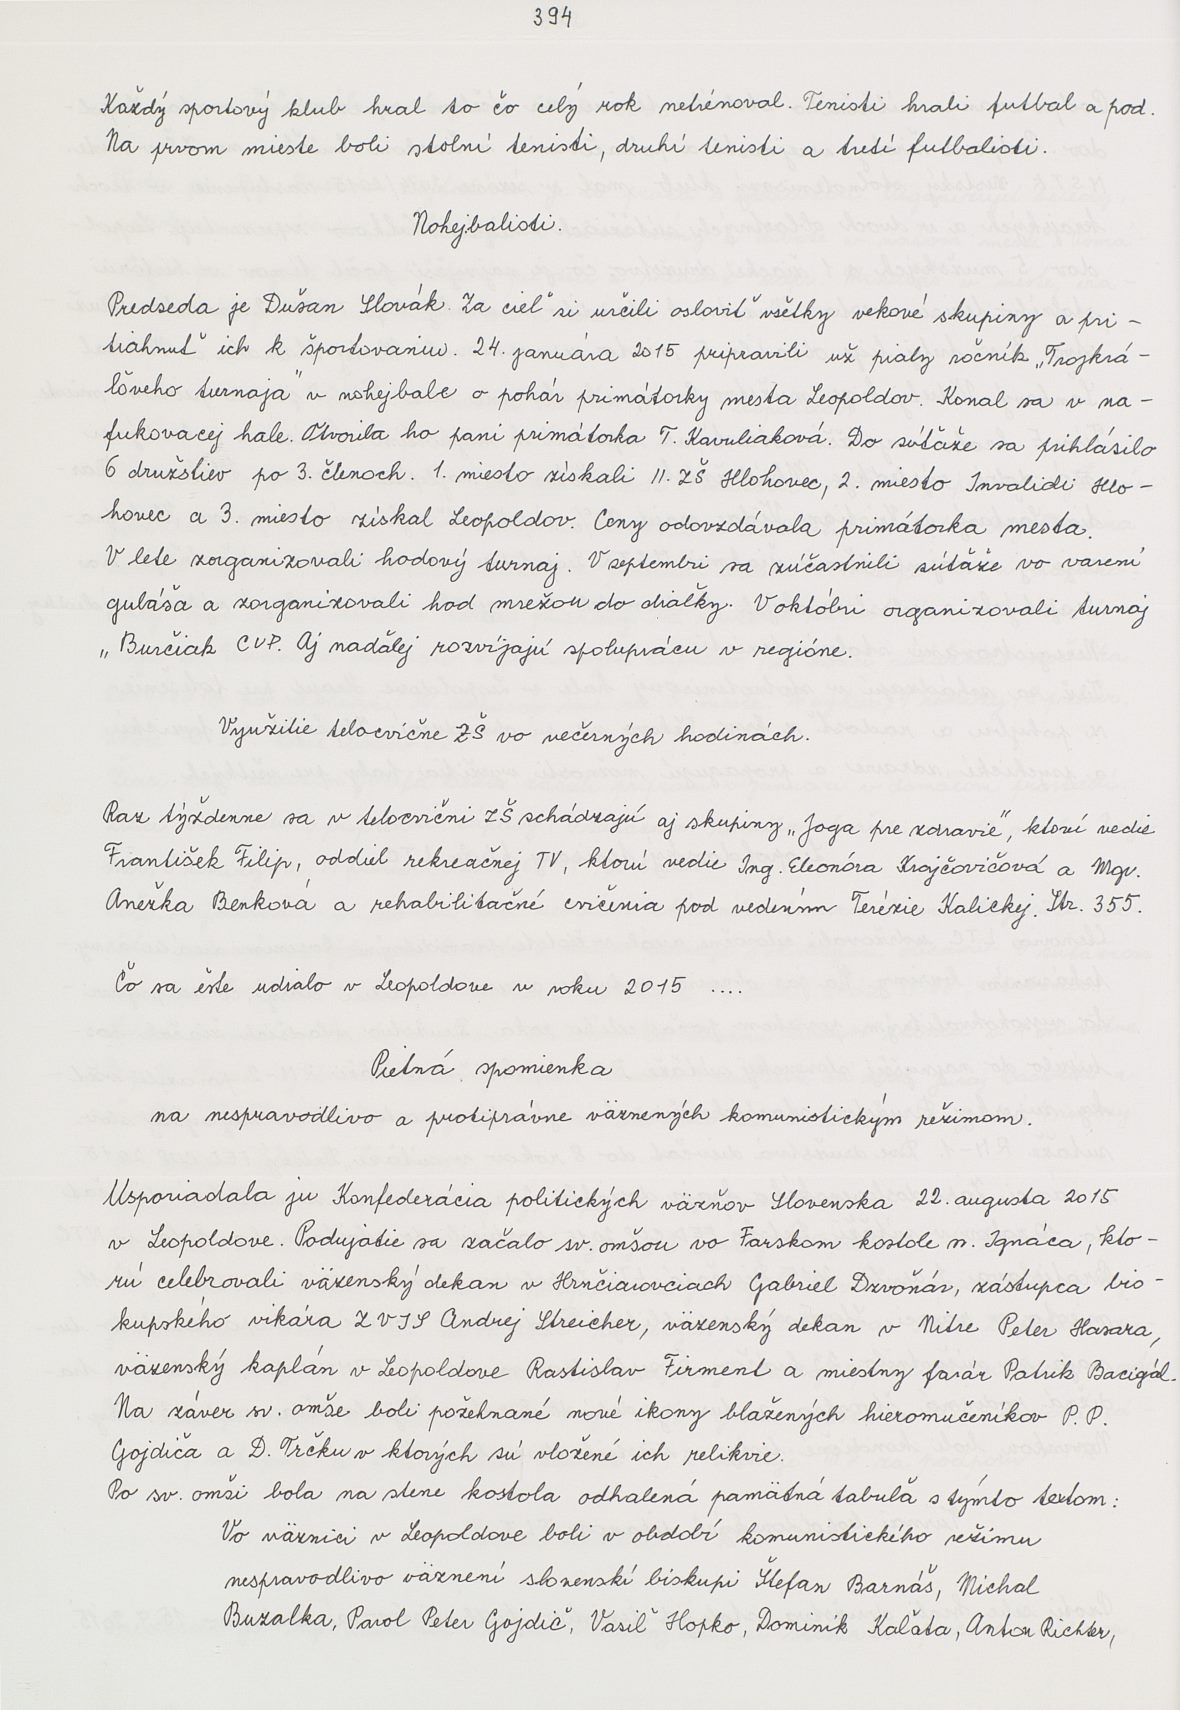 394
Každý sportový klub hral to čo celý rok netrénoval. Tenisti hrali futbal a pod.
Na prvom mieste boli stolní tenisti, druhí tenisti a tretí futbalisti.
Nohejbalisti.
Predseda je Dušan Slovák. Za cieľ si určili osloviť všetky vekové skupiny a pri-
tiahnuť ich k športovaniu. 24. januára 2015 pripravili už piaty ročník „Trojkrá-
lového turnaja" v nohejbale o pohár primátorky mesta Leopoldov. Konal sa v na-
fukovacej hale. Otvorila ho pani primátorka T. Kavuliaková. Do súťaže sa prihlásilo
6 družstiev po 3. členoch. 1. miesto získali II. ZŠ Hlohovec, 2. miesto Invalidi Hlo-
hovec a 3. miesto získal Leopoldov. Ceny odovzdávala primátorka mesta.
V lete zorganizovali hodový turnaj. V septembri sa zúčastnili súťaže vo varení
guláša a zorganizovali hod mrežou do diaľky. V októbri organizovali turnaj
„Burčiak CUP. Aj naďalej rozvíjajú spoluprácu v regióne.
Využitie telocvične ZŠ vo večerných hodinách.
Raz týždenne sa v telocvični ZŠ schádzajú aj skupiny „Joga pre zdravie", ktorú vedie
František Filip, oddiel rekreačnej TV, ktorú vedie Ing. Eleonóra Krajčovičová a Mgr.
Anežka Benková a rehabilitačné cvičenia pod vedením Terézie Kalickej. Str. 355.
Čo sa ešte udialo v Leopoldove v roku 2015 ....
Pietná spomienka
na nespravodlivo a protiprávne väznených komunistickým režimom.
Usporiadala ju Konfederácia politických väzňov Slovenska 22. augusta 2015
v Leopoldove. Podujatie sa začalo sv. omšou vo Farskom kostole sv. Ignáca, kto-
rú celebrovali väzenský dekan v Hrnčiarovciach Gabriel Dzvoňár, zástupca bis-
kupského vikára ZVJS Andrej Streicher, väzenský dekan v Nitre Peter Hasara,
väzenský kaplán v Leopoldove Rastislav Firment a miestny farár Patrik Bacigál.
Na záver sv. omše boli požehnané nové ikony blažených hieromučeníkov P. P.
Gojdiča a D. Trčku v ktorých sú vložené ich relikvie.
Po sv. omši bola na stene kostola odhalená pamätná tabuľa s týmto textom:
Vo väznici v Leopoldove boli v období komunistického režimu
nespravodlivo väznení slovenskí biskupi Štefan Barnáš, Michal
Buzalka, Pavol Peter Gojdič, Vasiľ Hopko, Dominik Kaľata, Anton Richter,